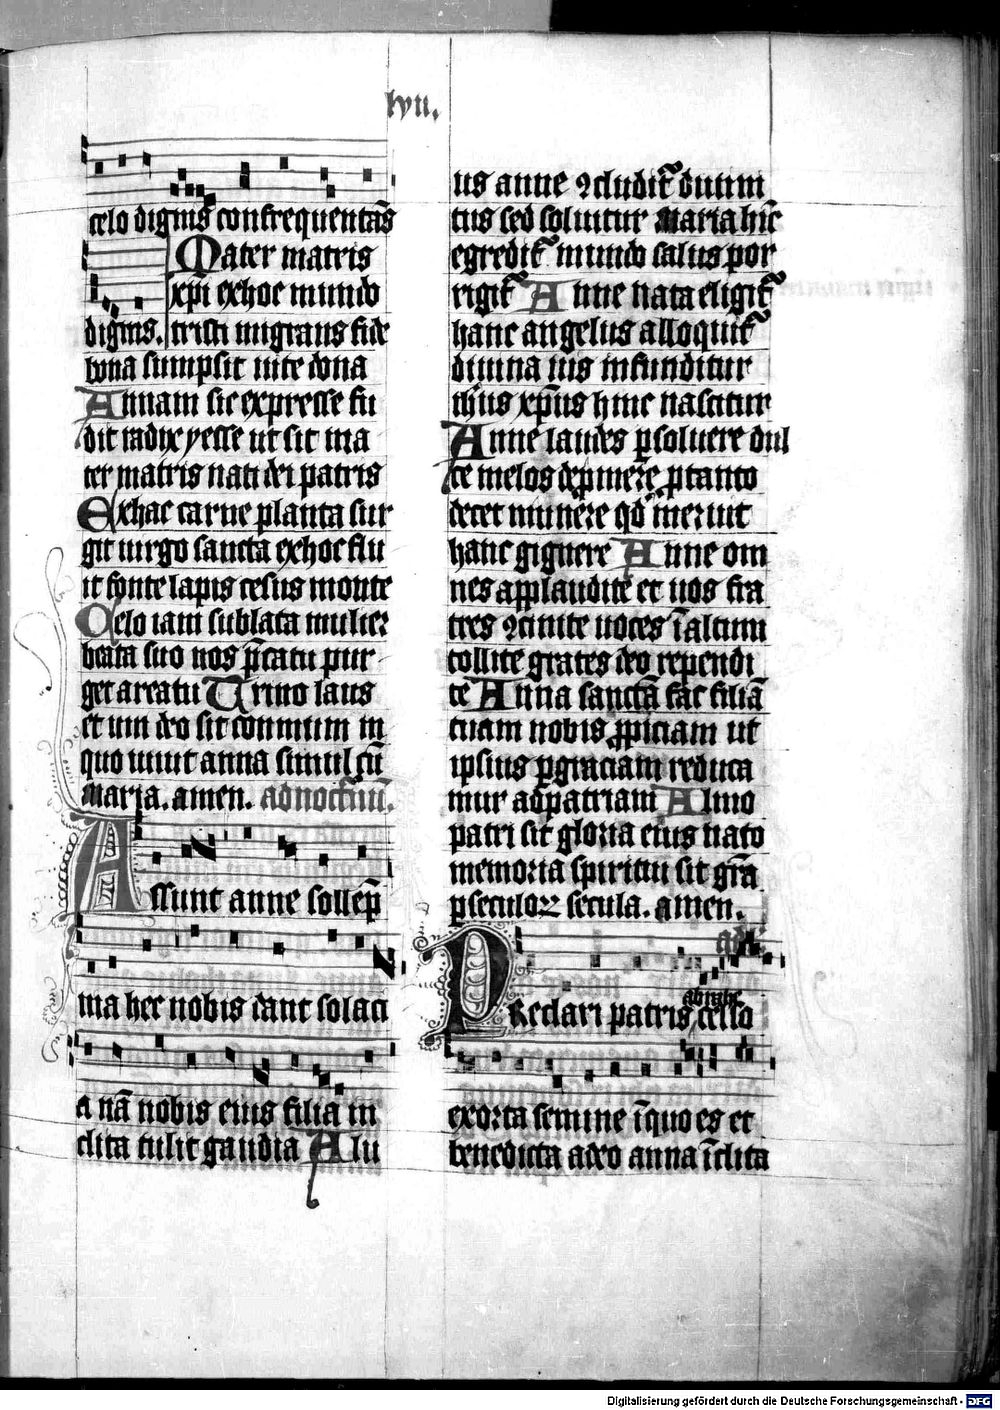 lvii.
celo dignis confrequentās
Mater matris
xp̄i ex hoc mundo
dignis. tristi migrans fide
bona sumpsit vite dona
Annam sic expresse fu
dit radix yesse ut sit ma
ter matris nati dei patris
Ex hac carne planta sur
git uirgo sancta ex hoc flu
it fonte lapis celsus monte
Celo iam sublata mulier
beata suo nos p̄catu pur
get a reatu Trino laus
et uni deo sit conuium in
quo uiuit anna simul cū
Maria. amen. ad noct̄nū.
Assunt anne sollēp
nia hec nobis dant solaci
a nā nobis eius filia in
clita tulit gaudia Alu
us anne ꝯcludit᷑ diutin
tus sed soluitur Maria hīc
egredit᷑ mundo salus por
rigit᷑ Anne nata eligit᷑
hanc angelus alloquit᷑
diuina uis infunditur
ihūs xp̄us hinc nascitur
Anne laudes ꝑsoluere dul
ce melos dep̄mere p̱ tanto
decet munere qd̄ meruit
hanc gignere Anne om
nes applaudite et uos fra
tres ꝯcinite uoces ī altum
tollite grates deo rependi
te Anna sanctā fac filiā
tuam nobis ꝓpiciam ut
ipsius ꝑ graciam reduca
mur ad patriam Almo
patri sit gloria eius nato
memoria spiritui sit grā
ꝑ seculoꝝ secula. amen.
Preclari patris abrahe celso
exorta semine ī quo es et
benedicta a deo anna īclita
Digitalisierung gefördert durch die Deutsche Forschungsgemeinschaft - DFG